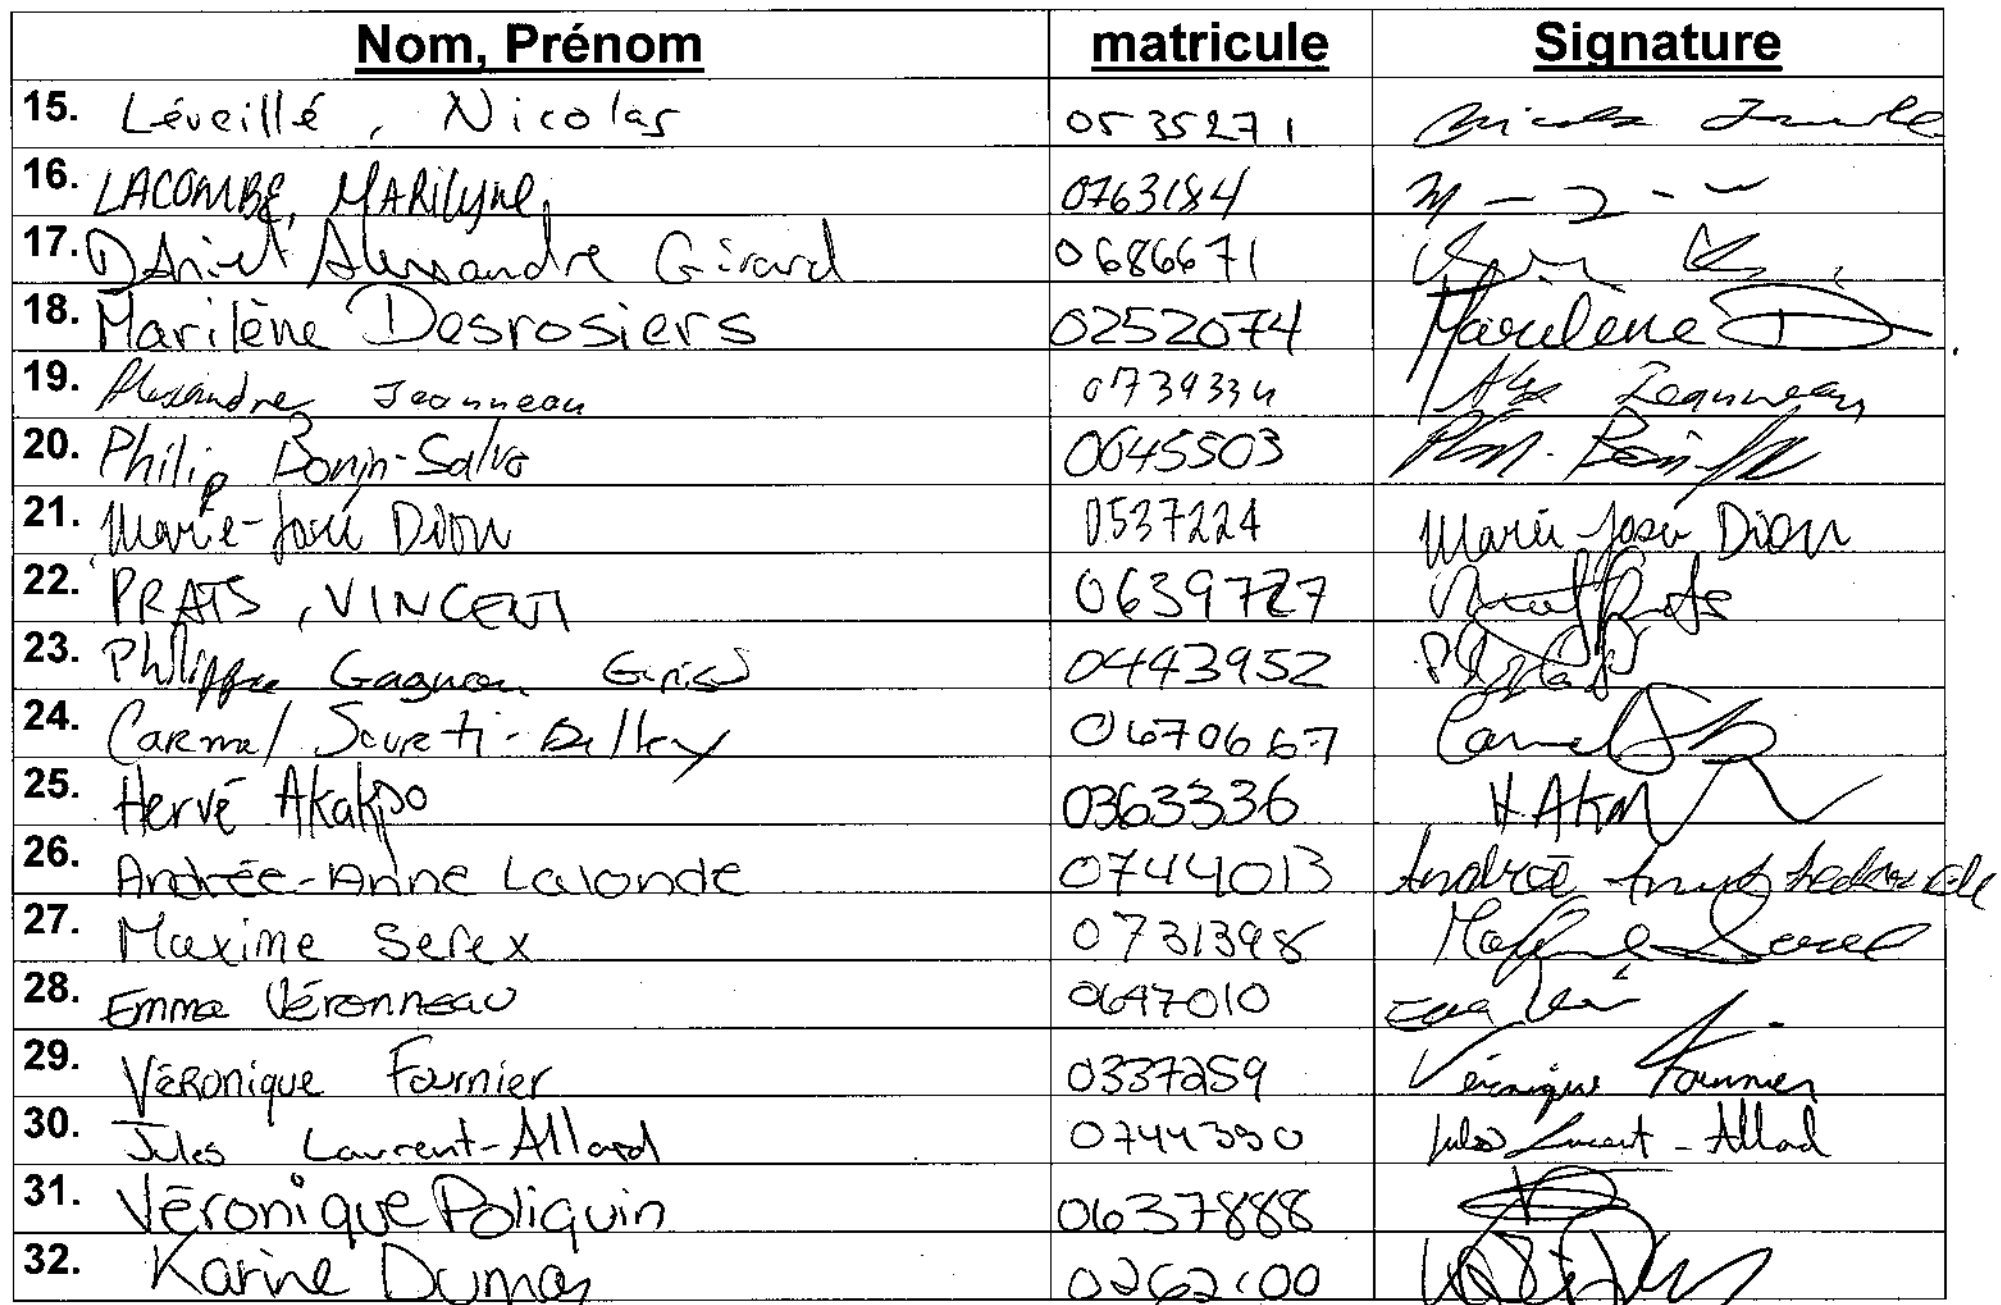 Nom, Prénom matricule Signature
15. Léveillé, Nicolas 0535271
16. LACOMBE, MARILYNE 0763184
17. DAniel Alexandre Girard 0686671
18. Marilène Desrosiers 0252074 Marilène D
19. Alexandre Jeanneau 0739334 Alex Jeanneau
20. Philip Bonin-Salvo 0645503
21. Marie-Josée Dion 0537224 Marie-Josée Dion
22. PRATS, VINCENT 0639727
23. Philippe Gagnon 0443952
24. Carmel 0670667 Carmel
25. Hervé Akakpo 0363336
26. Andrée-Anne Lalonde 0744013 Andrée
27. Maxime Serex 0731398
28. Emma Véronneau 0647010
29. Véronique Fournier 0337259 Véronique Fournier
30. Jules Laurent-Allard 0744390 Jules Laurent-Allard
31. Véronique Poliquin 0637888
32. Karine Dumas 0262100